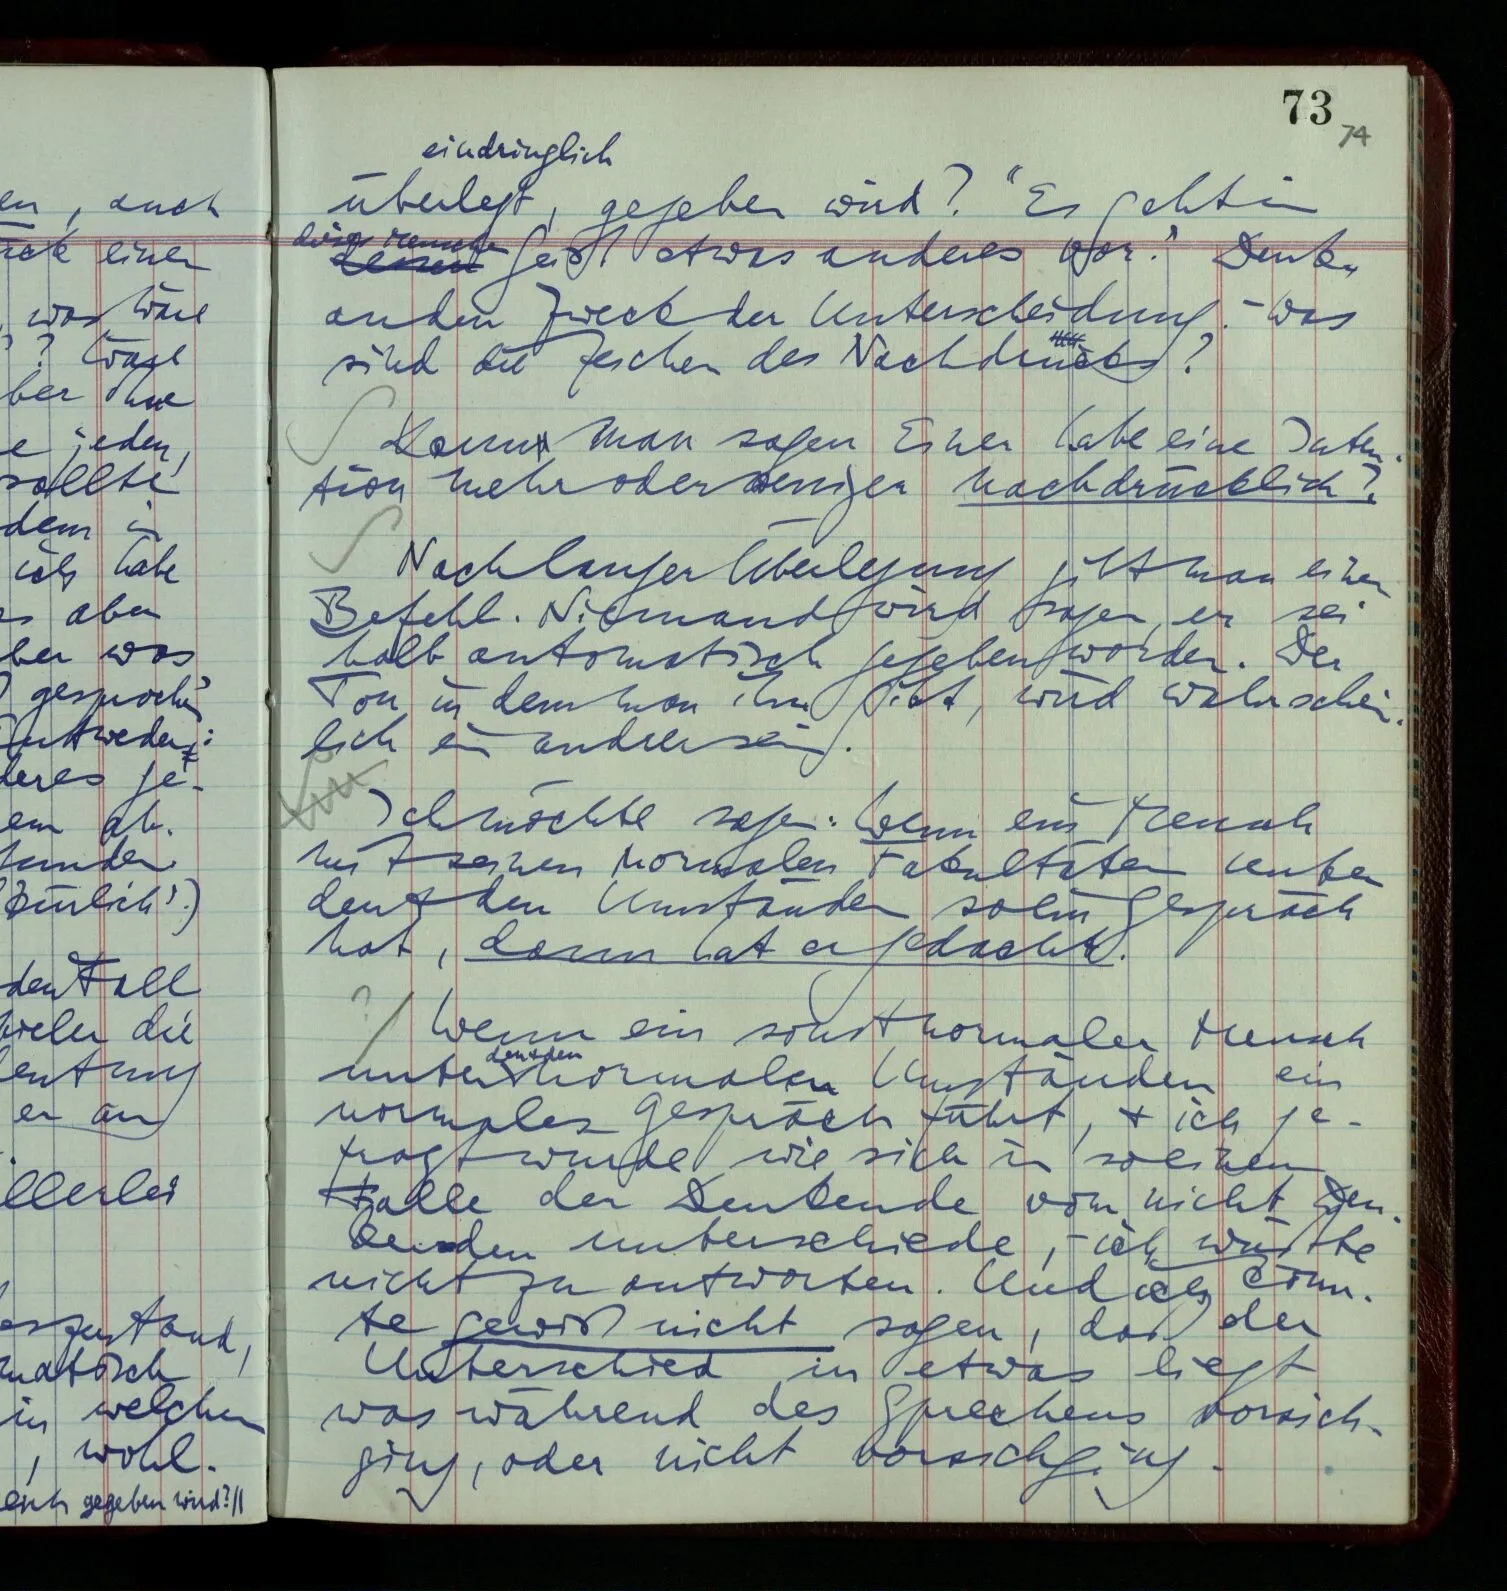 en, auch
einen
was wäre
? Wage
ber ohne
e jeden,
sollte
dem in
ich habe
s aber
ber was
gesprochen
Entweder:
deres ge-
em ab.
den Fall
vieler die
eutung
er an
llerlei
eszustand,
matisch
in welchen
, wohl.
gegeben wird?//
73
74
eindringlich
überlegt, gegeben wird? "Es geht in
dieses Menschen
dessen Geist etwas anderes vor." Denke
an den Zweck der Unterscheidung. – Was
sind die Zeichen des Nachdrucks?
Kann man sagen Einer habe eine Inten-
tion mehr oder weniger nachdrücklich?
Nach langer Überlegung gibt man einen
Befehl. Niemand wird sagen, er sei
halb automatisch gegeben worden. Der
Ton in dem man ihn gibt, wird wahrschein-
lich ein andrer sein.
Ich möchte sagen: Wenn ein Mensch
mit seinen normalen Fakultäten unter
den & den Umständen so ein Gespräch
hat, dann hat er gedacht.
? / Wenn ein sonst normaler Mensch
den & den
unter normalen Umständen ein
normales Gespräch führt, & ich ge-
fragt würde wie sich in so einem
Falle der Denkende vom nicht Den-
kenden unterschiede, – ich wüßte
nicht zu antworten. Und ich könn-
te gewiß nicht sagen, daß der
Unterschied in etwas liegt
was während des Sprechens vorsich-
ging, oder nicht vorsichging.